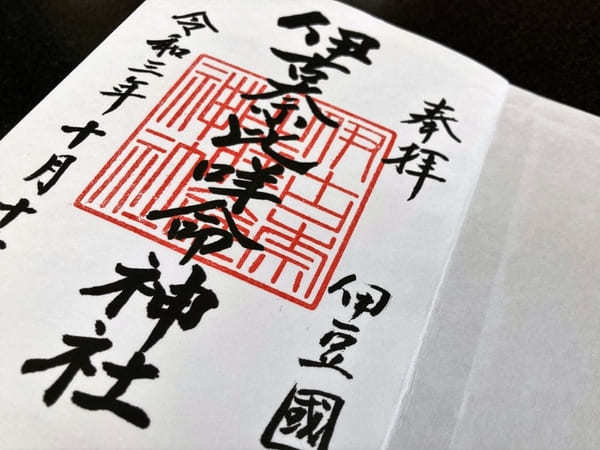 奉拝
伊豆國
伊古奈比咩命神社
令和三年十月十
伊古奈
神社